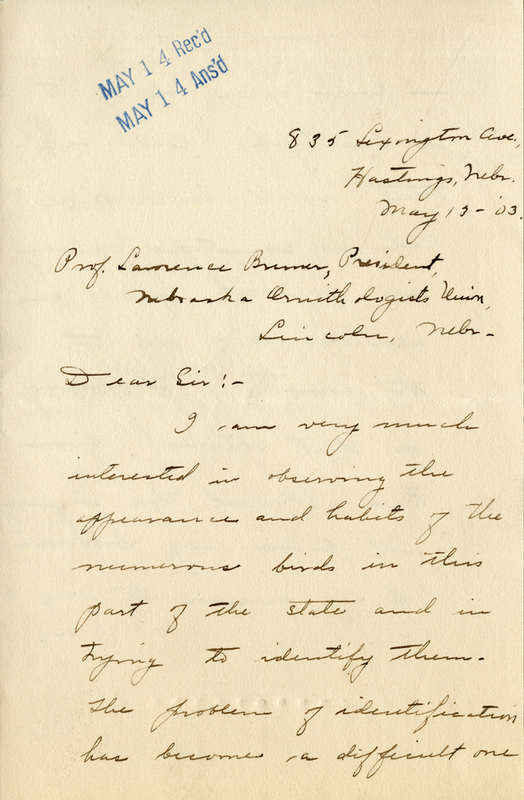 MAY 14 Rec'd
MAY 14 Ans'd
835 Lexington Ave.,
Hastings, Nebr.
May 13-'03.
Prof. Lawrence Bruner, President,
Nebraska Ornithologists Union,
Lincoln, Nebr-
Dear Sir:-
I am very much
interested in observing the
appearance and habits of the
numerous birds in this
part of the state and in
trying to identify them.
The problem of identification
has become a difficult one